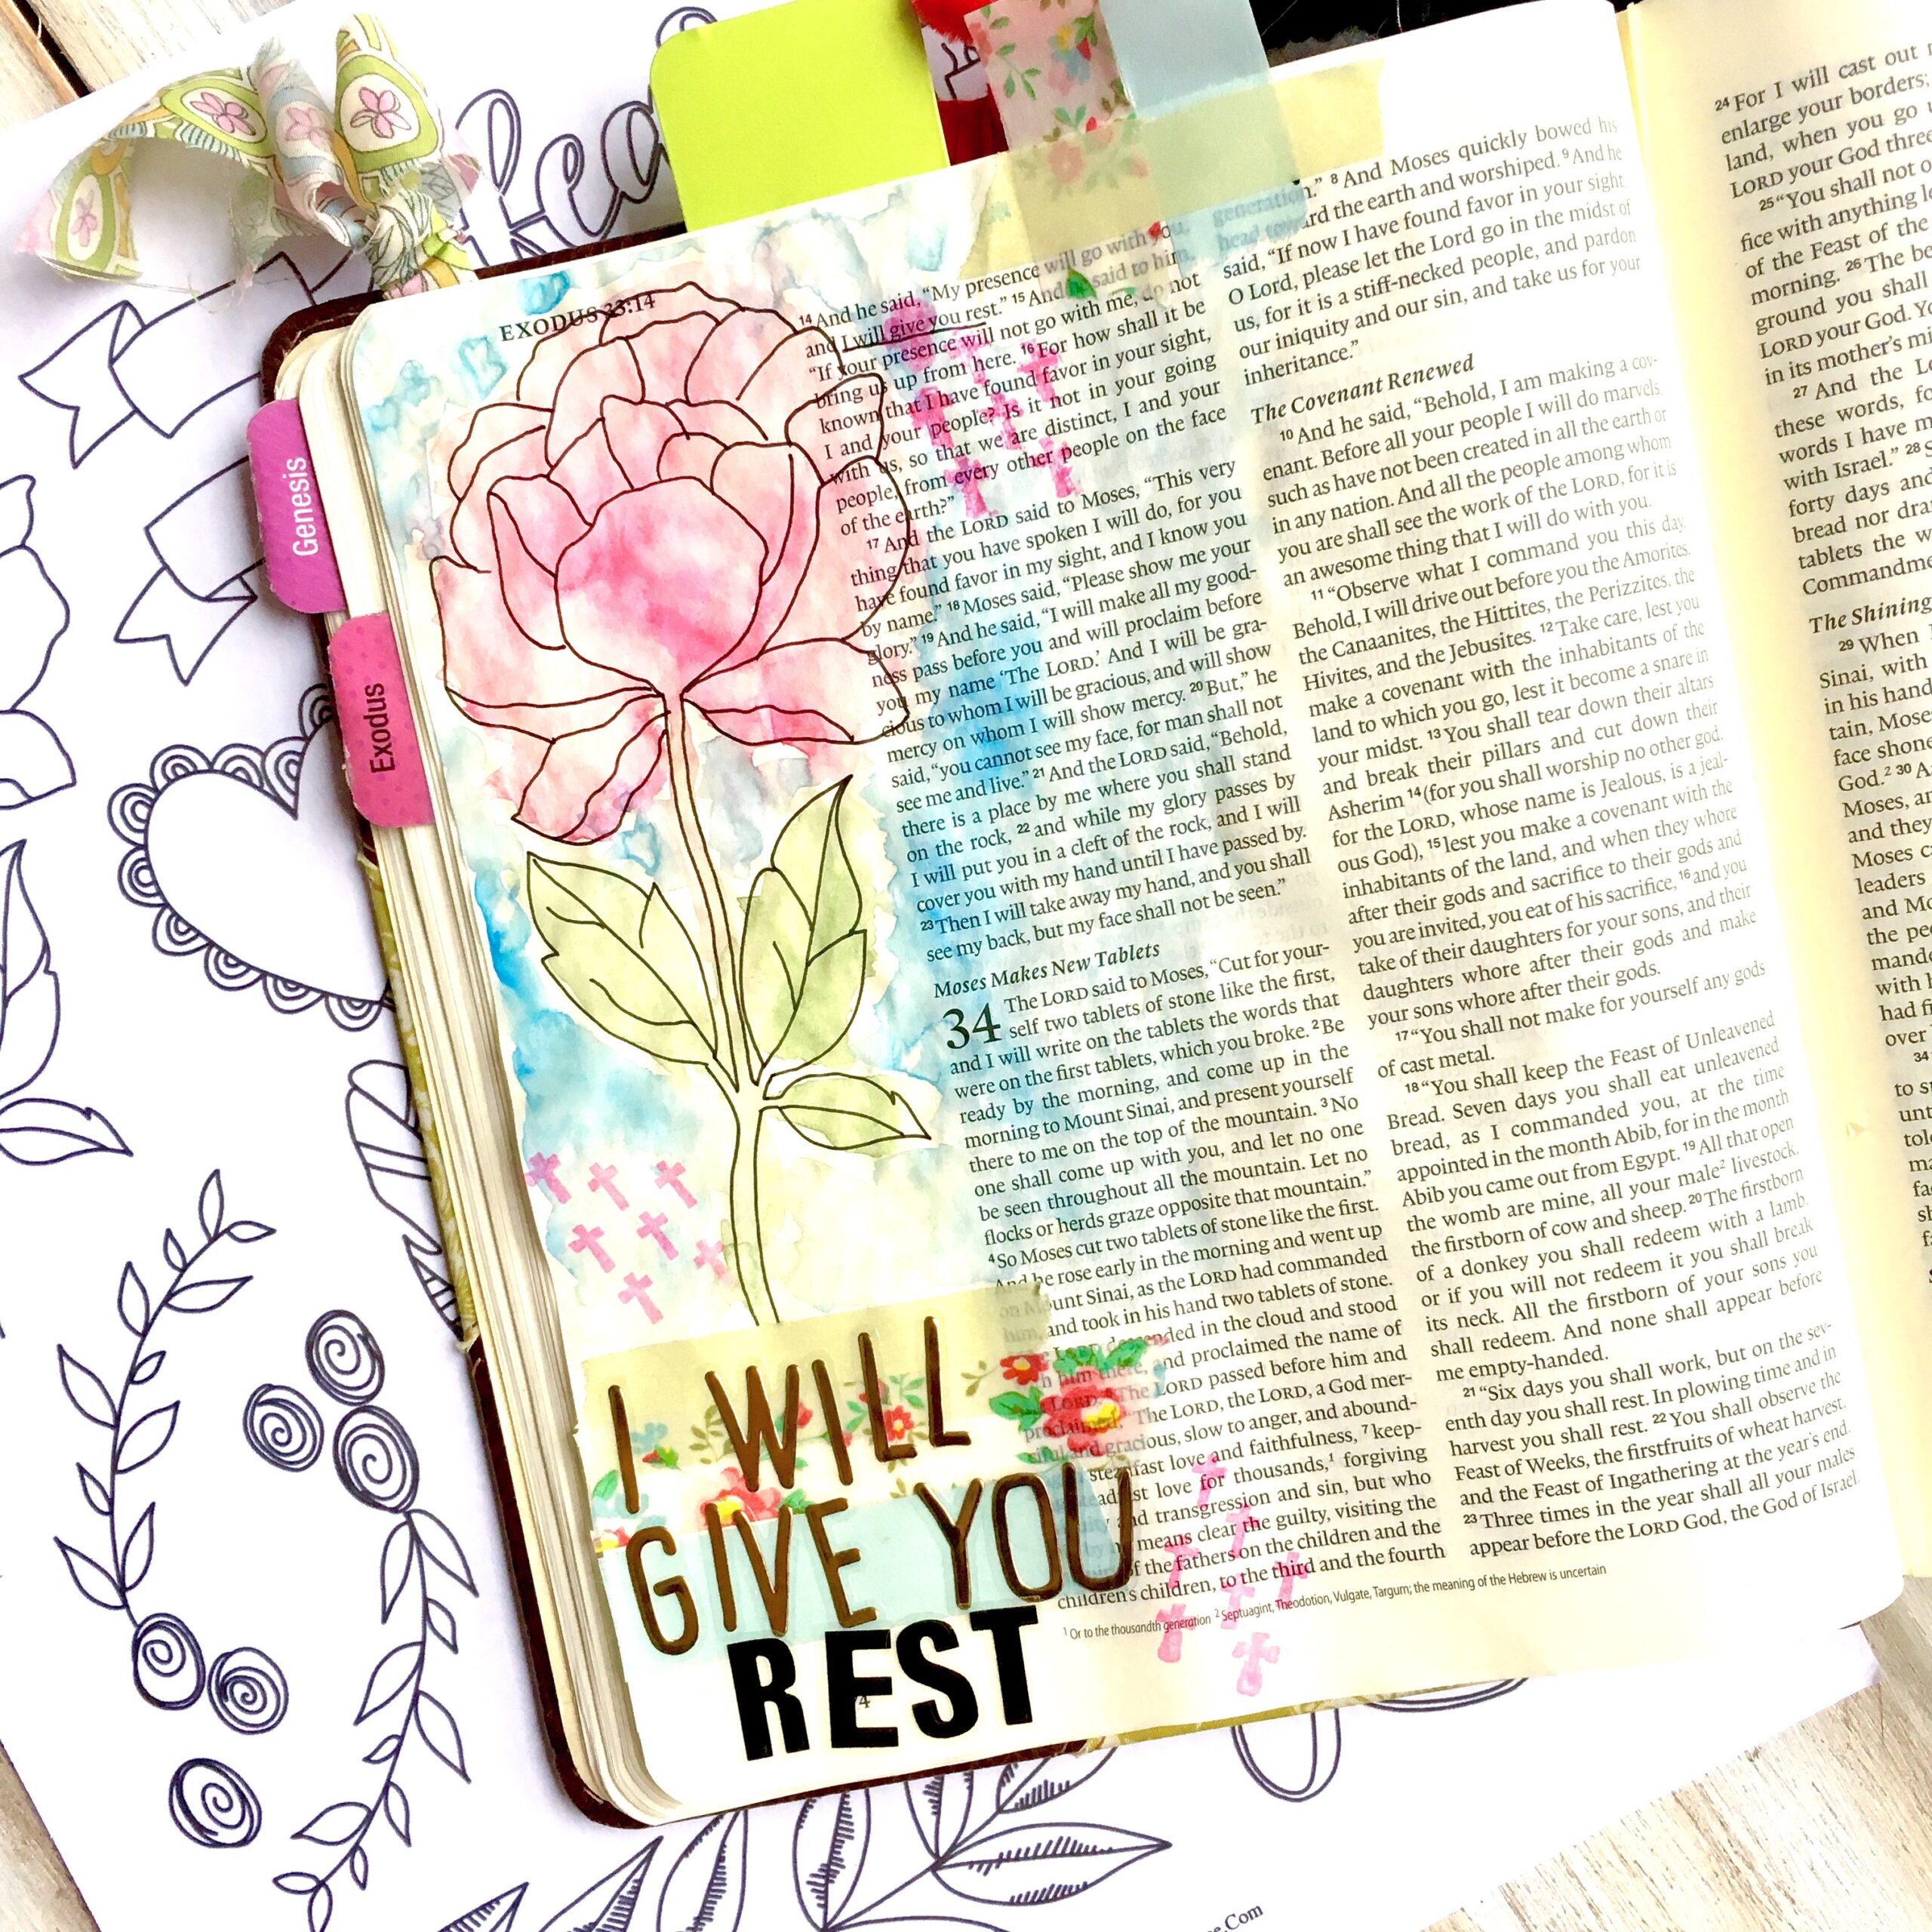 Genesis
Exodus
EXODUS 33:14
14 And he said, “My presence will go with you,
and I will give you rest.” 15 And he said to him,
“If your presence will not go with me, do not
bring us up from here. 16 For how shall it be
known that I have found favor in your sight,
I and your people? Is it not in your going
with us, so that we are distinct, I and your
people, from every other people on the face
of the earth?”
17 And the LORD said to Moses, “This very
thing that you have spoken I will do, for you
have found favor in my sight, and I know you
by name.” 18 Moses said, “Please show me your
glory.” 19 And he said, “I will make all my good-
ness pass before you and will proclaim before
you my name ‘The LORD.’ And I will be gra-
cious to whom I will be gracious, and will show
mercy on whom I will show mercy. 20 But,” he
said, “you cannot see my face, for man shall not
see me and live.” 21 And the LORD said, “Behold,
there is a place by me where you shall stand
on the rock, 22 and while my glory passes by
I will put you in a cleft of the rock, and I will
cover you with my hand until I have passed by.
23 Then I will take away my hand, and you shall
see my back, but my face shall not be seen.”
Moses Makes New Tablets
34 The LORD said to Moses, “Cut for your-
self two tablets of stone like the first,
and I will write on the tablets the words that
were on the first tablets, which you broke. 2 Be
ready by the morning, and come up in the
morning to Mount Sinai, and present yourself
there to me on the top of the mountain. 3 No
one shall come up with you, and let no one
be seen throughout all the mountain. Let no
flocks or herds graze opposite that mountain.”
4 So Moses cut two tablets of stone like the first.
And he rose early in the morning and went up
on Mount Sinai, as the LORD had commanded
him, and took in his hand two tablets of stone.
descended in the cloud and stood
him there, and proclaimed the name of
LORD. The LORD passed before him and
proclaimed, “The LORD, the LORD, a God mer-
ciful and gracious, slow to anger, and abound-
steadfast love and faithfulness, 7 keep-
love for thousands,1 forgiving
and transgression and sin, but who
means clear the guilty, visiting the
of the fathers on the children and the
children’s children, to the third and the fourth
generation.” 8 And Moses quickly bowed his
head toward the earth and worshiped. 9 And he
said, “If now I have found favor in your sight,
O Lord, please let the Lord go in the midst of
us, for it is a stiff-necked people, and pardon
our iniquity and our sin, and take us for your
inheritance.”
The Covenant Renewed
10 And he said, “Behold, I am making a cov-
enant. Before all your people I will do marvels,
such as have not been created in all the earth or
in any nation. And all the people among whom
you are shall see the work of the LORD, for it is
an awesome thing that I will do with you.
11 “Observe what I command you this day.
Behold, I will drive out before you the Amorites,
the Canaanites, the Hittites, the Perizzites, the
Hivites, and the Jebusites. 12 Take care, lest you
make a covenant with the inhabitants of the
land to which you go, lest it become a snare in
your midst. 13 You shall tear down their altars
and break their pillars and cut down their
Asherim 14 (for you shall worship no other god,
for the LORD, whose name is Jealous, is a jeal-
ous God), 15 lest you make a covenant with the
inhabitants of the land, and when they whore
after their gods and sacrifice to their gods and
you are invited, you eat of his sacrifice, 16 and you
take of their daughters for your sons, and their
daughters whore after their gods and make
your sons whore after their gods.
17 “You shall not make for yourself any gods
of cast metal.
18 “You shall keep the Feast of Unleavened
Bread. Seven days you shall eat unleavened
bread, as I commanded you, at the time
appointed in the month Abib, for in the month
Abib you came out from Egypt. 19 All that open
the womb are mine, all your male2 livestock,
the firstborn of cow and sheep. 20 The firstborn
of a donkey you shall redeem with a lamb,
or if you will not redeem it you shall break
its neck. All the firstborn of your sons you
shall redeem. And none shall appear before
me empty-handed.
21 “Six days you shall work, but on the sev-
enth day you shall rest. In plowing time and in
harvest you shall rest. 22 You shall observe the
Feast of Weeks, the firstfruits of wheat harvest,
and the Feast of Ingathering at the year’s end.
23 Three times in the year shall all your males
appear before the LORD God, the God of Israel.
1 Or to the thousandth generation 2 Septuagint, Theodotion, Vulgate, Targum; the meaning of the Hebrew is uncertain
I WILL
GIVE YOU
REST
24 For I will cast out
enlarge your borders;
land, when you go
LORD your God three
25 “You shall not
fice with anything
of the Feast of the
morning. 26 The
ground you shall
LORD your God.
in its mother’s
27 And the
these words,
words I have
with Israel.” 28
forty days and
bread nor
tablets the
The Shining
29 When
Sinai, with
in his hand
face shone
God.2 30
Moses,
and they
Moses
leaders
and
the
with
had
over
34
to
.Com